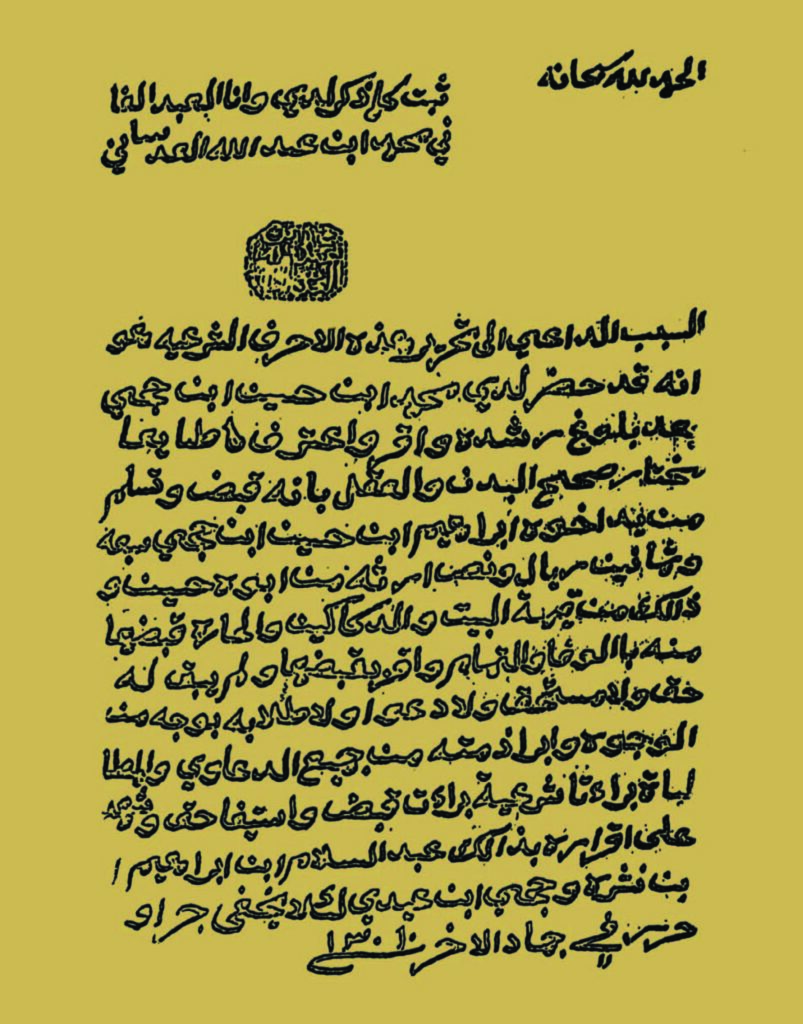 الحمد لله سبحانه
ثبت كلما ذكر لدي وانا العبد الفا
ني محمد ابن عبد الله العدساني
السبب الداعي الى تحرير هذه الاحرف الشرعيه هو
انه قد حضر لدي محمد ابن حسين ابن حجي
بعد بلوغ رشده واقر واعترف طايعا
مختار صحيح البدن والعقل بانه قبض وتسلم
من يد اخوه ابراهيم ابن حسين ابن حجي سبعه
وثمانين ريال ونصف ارثه من ابوه حسين و
ذالك من قيمة البيت والدكاكين والحماره قبضها
منه باالوفا والتمام واقر بقبضها ولم يبق له
حق ولا مستحق ولا دعوا ولا طلابه بوجه من
الوجوه وابرا ذمته من جميع الدعاوي والمطا
لباة براءتا شرعية براءت قبض واستيفا حق وشهد
على اقراره بذالك عبد السلام ابن ابراهيم ا
بن نشرة وحجي ابن عبدي لكلا يخفى جرا و
حرر في جماد الاخر سنة ١٣٠١